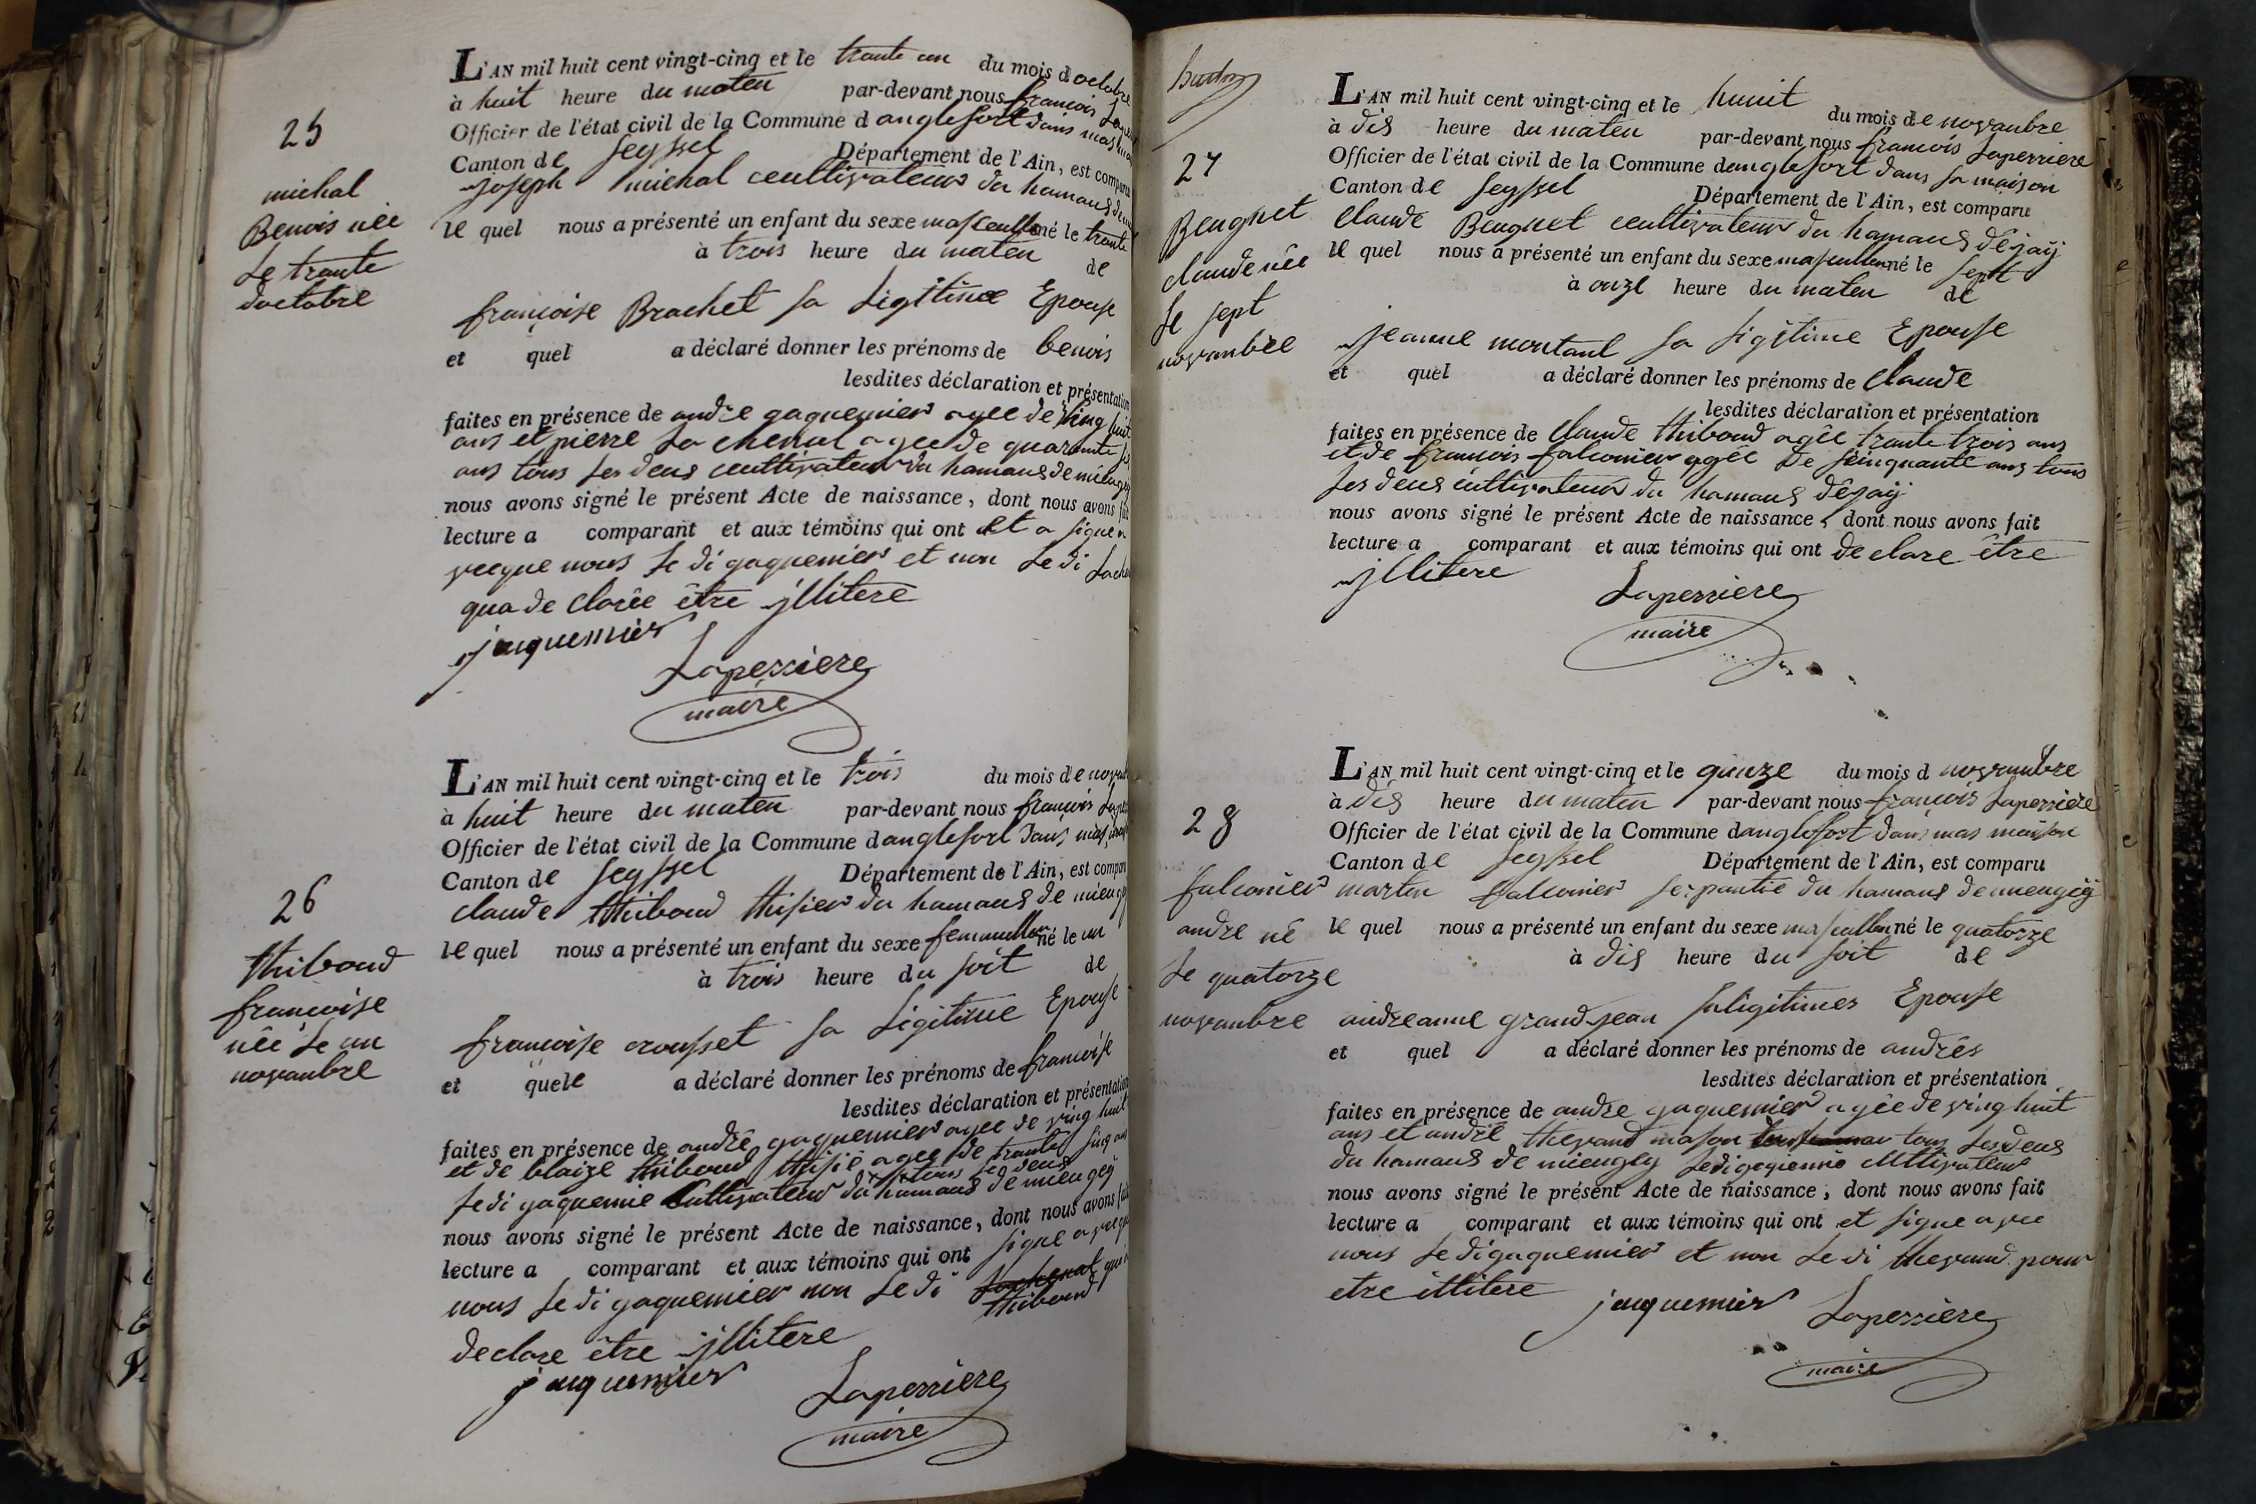 25
michal
Benois née
Le trante
doctobre
L'AN mil huit cent vingt-cinq et le trante un du mois doctobre
à huit heure du maten par-devant nous francois
Officier de l'état civil de la Commune danglefort dans mas
Canton de Seyssel Département de l'Ain, est comparu
joseph michal ceultivateur du hamaus
le quel nous a présenté un enfant du sexe mascullen né le trante
à trois heure du maten de
françoise Brachet sa Ligitime Epouse
et quel a déclaré donner les prénoms de benois
lesdites déclaration et présentation
faites en présence de andre gaquemier agee de ving huit
ans et pierre La chenal agée de quarante
ans tous les deus ceultivateur du hamaus de miengey
nous avons signé le présent Acte de naissance, dont nous avons fait
lecture a comparant et aux témoins qui ont et a signe a
vecque nous le di gaquemier et non Le di
qua de clarée être jllitere
jaquemier
Laperriere
maire
26
thiboud
francoise
née Le un
novanbre
L'AN mil huit cent vingt-cinq et le trois du mois de
à huit heure du maten par-devant nous francois
Officier de l'état civil de la Commune danglefort dans mas
Canton de Seyssel Département de l'Ain, est comparu
claude thiboud thisier du hamaus de miengey
le quel nous a présenté un enfant du sexe né le un
à trois heure du soit de
francoise crousset sa Ligitime Epouse
et quele a déclaré donner les prénoms de francoise
lesdites déclaration et présentation
faites en présence de andrê gaquemier agee de ving huit
et de blaize thiboud thisié agee de trante sinq ans
tous les deus
le di gaquemie Cultivateur du hamaus de miengey
nous avons signé le présent Acte de naissance, dont nous avons fait
lecture a comparant et aux témoins qui ont signe a vecque
nous le di gaquemier non Le di Lachenal qui
thiboud
declare être jllitere
jaquemier
Laperriere
maire
27
Beugnet
claude née
le sept
novanbre
L'AN mil huit cent vingt-cinq et le huuit du mois de novanbre
à dis heure du maten par-devant nous francois Laperriere
Officier de l'état civil de la Commune danglefort dans sa maison
Canton de Seyssel Département de l'Ain, est comparu
claude Beugnet ceultivateur du hamaus
le quel nous a présenté un enfant du sexe mascullen né le sept
à onze heure du maten de
jeanne montant sa Ligitime Epouse
et quel a déclaré donner les prénoms de claude
lesdites déclaration et présentation
faites en présence de claude thiboud agêe trante trois ans
et de francois falconier agée de seinquante ans tous
les deus cultivateur du hamaus
nous avons signé le présent Acte de naissance, dont nous avons fait
lecture a comparant et aux témoins qui ont declare être
jllitere
Laperriere
maire
28
falconier
andre né
le quatorze
novanbre
L'AN mil huit cent vingt-cinq et le quinze du mois d novanbre
à dis heure du maten par-devant nous francois Laperriere
Officier de l'état civil de la Commune danglefort dans mas maison
Canton de Seyssel Département de l'Ain, est comparu
marten falconier du hamaus de miengey
le quel nous a présenté un enfant du sexe mascullen né le quatorze
à dis heure du soit de
andreanne grand-jean saligitimes Epouse
et quel a déclaré donner les prénoms de andrês
lesdites déclaration et présentation
faites en présence de andre gaquemier agêe de ving huit
ans et andrê thevand mason tous les deus
du hamaus de miengey
nous avons signé le présent Acte de naissance, dont nous avons fait
lecture a comparant et aux témoins qui ont et signe avec
nous le di gaquemier et non Le di thevand pour
etre illitere
jaquemier
Laperriere
maire